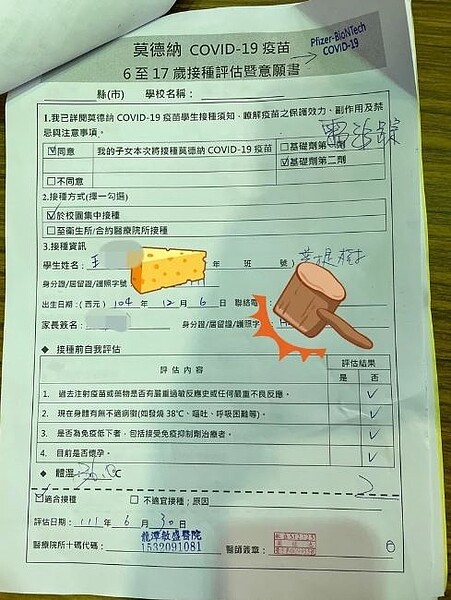 莫德納 COVID-19 疫苗
Pfizer-BioNTech
COVID-19
6 至 17 歲接種評估暨意願書
縣(市) 學校名稱：
1.我已詳閱莫德納 COVID-19 疫苗學生接種須知，瞭解疫苗之保護效力、副作用及禁
忌與注意事項。
☑同意 我的子女本次將接種莫德納 COVID-19 疫苗 □基礎劑第一劑
☑基礎劑第二劑
□不同意
2.接種方式(擇一勾選)
☑於校園集中接種
□至衛生所/合約醫療院所接種
3.接種資訊
學生姓名： 王 年 班 號)
身分證/居留證/護照字號
出生日期：(西元) 104 年 12 月 6 日 聯絡電
家長簽名： 身分證/居留證/護照字
◆ 接種前自我評估
評估內容 評估結果
是 否
1. 過去注射疫苗或藥物是否有嚴重過敏反應史或任何嚴重不良反應。 ✓
2. 現在身體有無不適病徵(如發燒 38℃、嘔吐、呼吸困難等)。 ✓
3. 是否為免疫低下者，包括接受免疫抑制劑治療者。 ✓
4. 目前是否懷孕。 ✓
◆ 體溫： ℃
☑適合接種 □ 不適宜接種；原因
評估日期：111 年 6 月 30 日
醫療院所十碼代碼： 龍潭敏盛醫院
1532091081 醫師簽章：